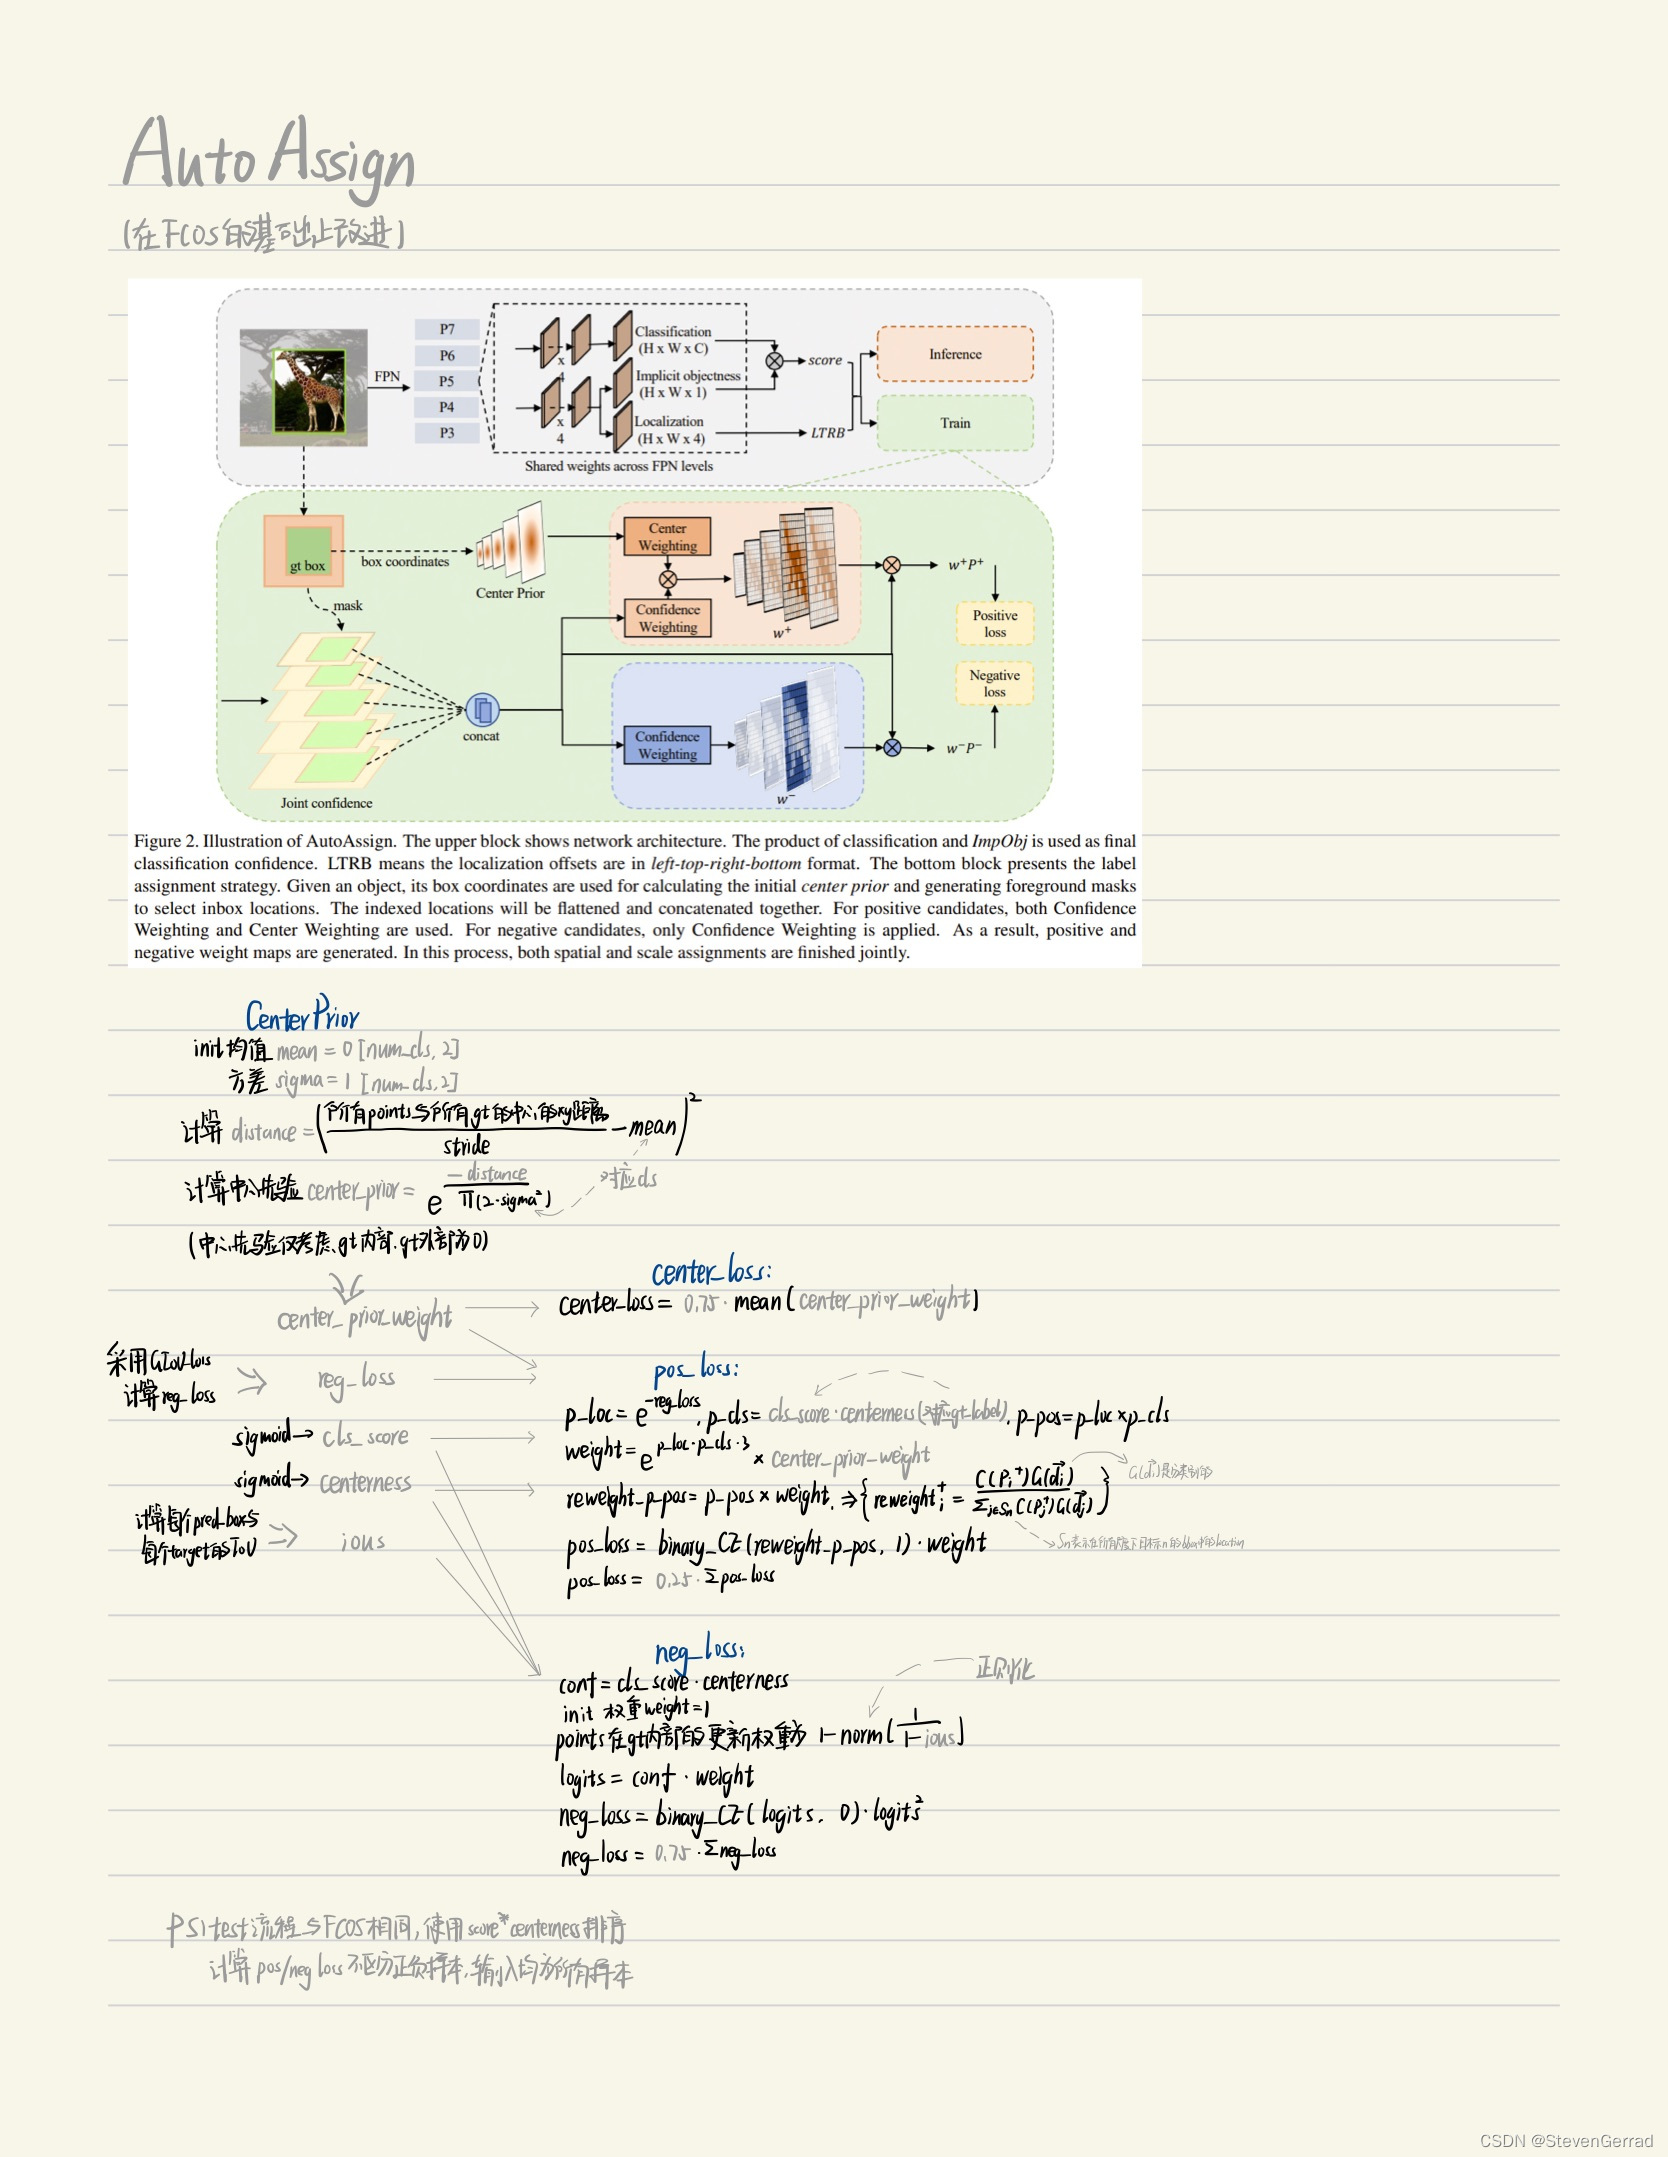 Auto Assign
(在FCOS的基础上改进)
P7
P6
P5
P4
P3
FPN
x 4
x 4
Classification
(H x W x C)
Implicit objectness
(H x W x 1)
Localization
(H x W x 4)
Shared weights across FPN levels
score
LTRB
Inference
Train
gt box
box coordinates
mask
Center Prior
Center Weighting
Confidence Weighting
w⁺
w⁺P⁺
Positive loss
Negative loss
Joint confidence
concat
Confidence Weighting
w⁻
w⁻P⁻
Figure 2. Illustration of AutoAssign. The upper block shows network architecture. The product of classification and ImpObj is used as final
classification confidence. LTRB means the localization offsets are in left-top-right-bottom format. The bottom block presents the label
assignment strategy. Given an object, its box coordinates are used for calculating the initial center prior and generating foreground masks
to select inbox locations. The indexed locations will be flattened and concatenated together. For positive candidates, both Confidence
Weighting and Center Weighting are used. For negative candidates, only Confidence Weighting is applied. As a result, positive and
negative weight maps are generated. In this process, both spatial and scale assignments are finished jointly.
Center Prior
init 均值 mean = 0 [num_cls, 2]
方差 sigma = 1 [num_cls, 2]
计算 distance = (所有points与所有gt的中心的xy距离 / stride − mean)²
计算中心先验 center_prior = e^(−distance / Π(2·sigma²))
对应cls
(中心先验仅考虑gt内部,gt外部为0)
center_prior_weight
center_loss:
center_loss = 0.75 · mean(center_prior_weight)
采用GIoU loss
计算reg_loss
reg_loss
sigmoid→ cls_score
sigmoid→ centerness
计算每个pred_box与
每个target的IoU
ious
pos_loss:
p_loc = e^(−reg_loss), p_cls = cls_score·centerness(对应gt_label), p_pos = p_loc × p_cls
weight = e^(p_loc·p_cls·3) × center_prior_weight
reweight_p_pos = p_pos × weight, ⇒ {reweight_i⁺ = C(P_i⁺)G(d_i) / Σ_{j∈Sn} C(P_j⁺)G(d_j)}
G(d_i)是分类别的
pos_loss = binary_CE(reweight_p_pos, 1) · weight
Sn表示在所有尺度下目标n的bbox中的location
pos_loss = 0.25 · Σpos_loss
neg_loss:
conf = cls_score · centerness
init 权重weight=1
正则化
points在gt内部的更新权重为 1−norm(1 / 1−ious)
logits = conf · weight
neg_loss = binary_CE(logits, 0) · logits²
neg_loss = 0.75 · Σneg_loss
PS: test流程与FCOS相同,使用score*centerness排序
计算pos/neg loss不区分正负样本,输入均为所有样本
CSDN @StevenGerrad